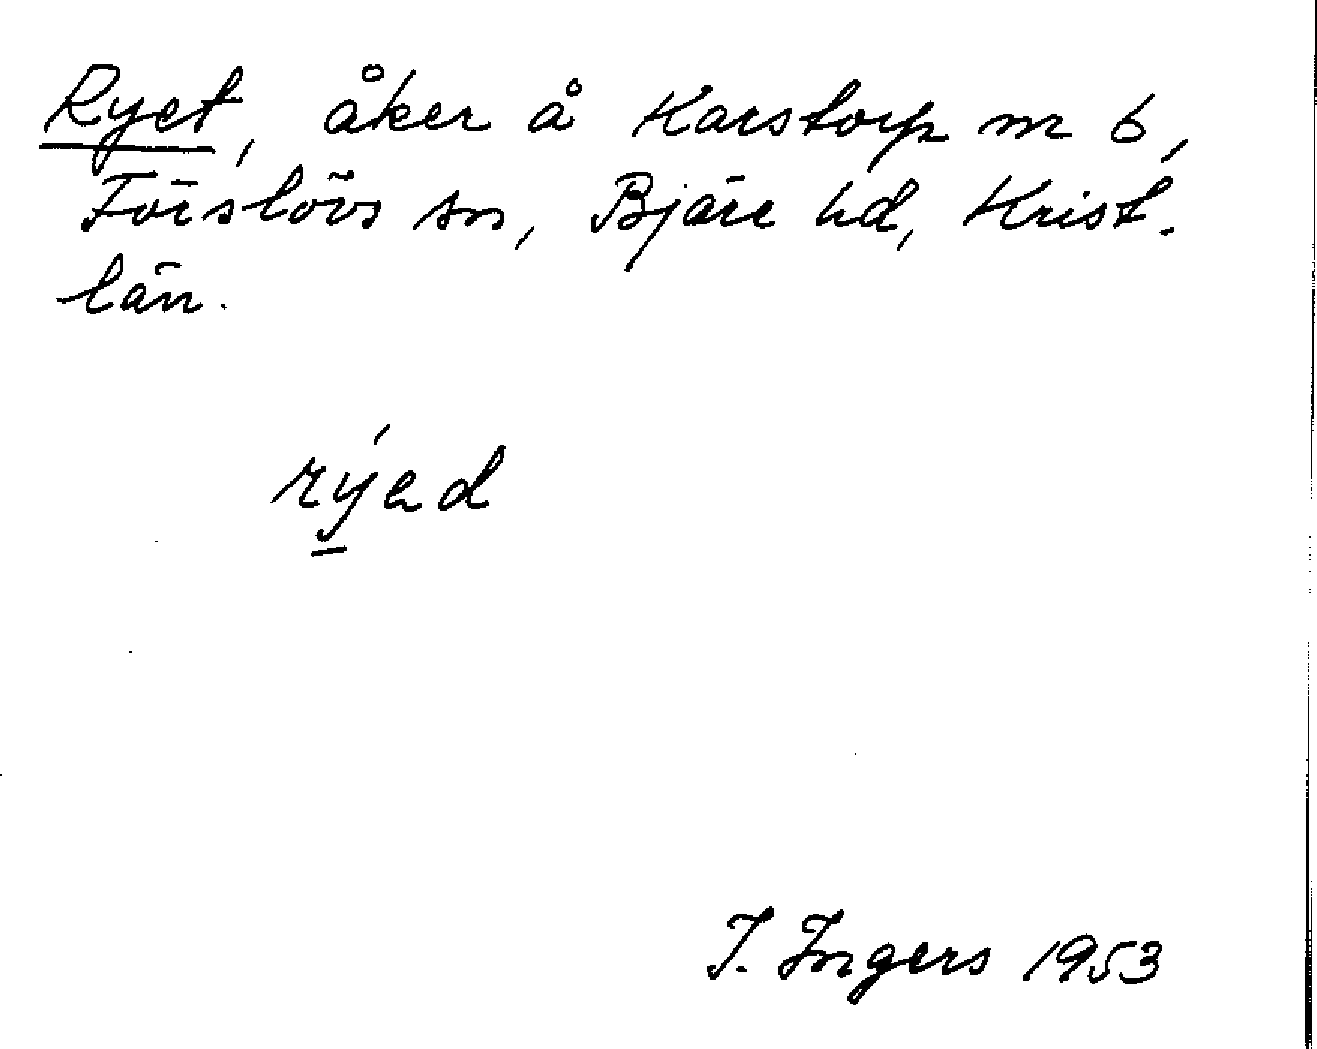 Ryet, åker å Karstorp m 6,
Förslövs sn, Bjäre hd, Krist.
län.
rýad
I. Ingers 1953